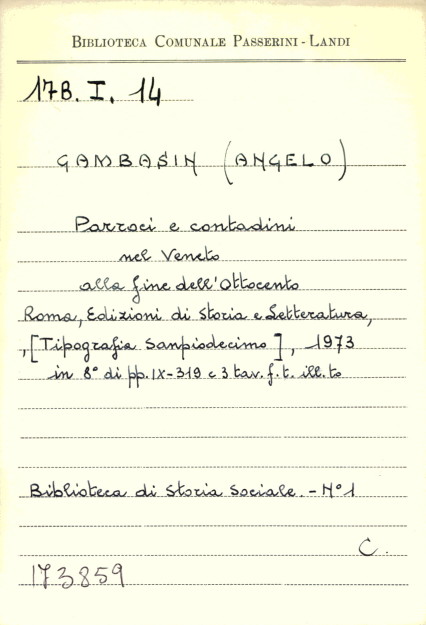 BIBLIOTECA COMUNALE PASSERINI - LANDI
178. I. 14
GAMBASIN (ANGELO)
Parroci e contadini
nel Veneto
alla fine dell'Ottocento
Roma, Edizioni di Storia e Letteratura,
, [Tipografia Sanpiodecimo], 1973
in 8° di pp. IX-319 e 3 tav. f. t. ill. to
Biblioteca di Storia Sociale. - N° 1
C.
173859